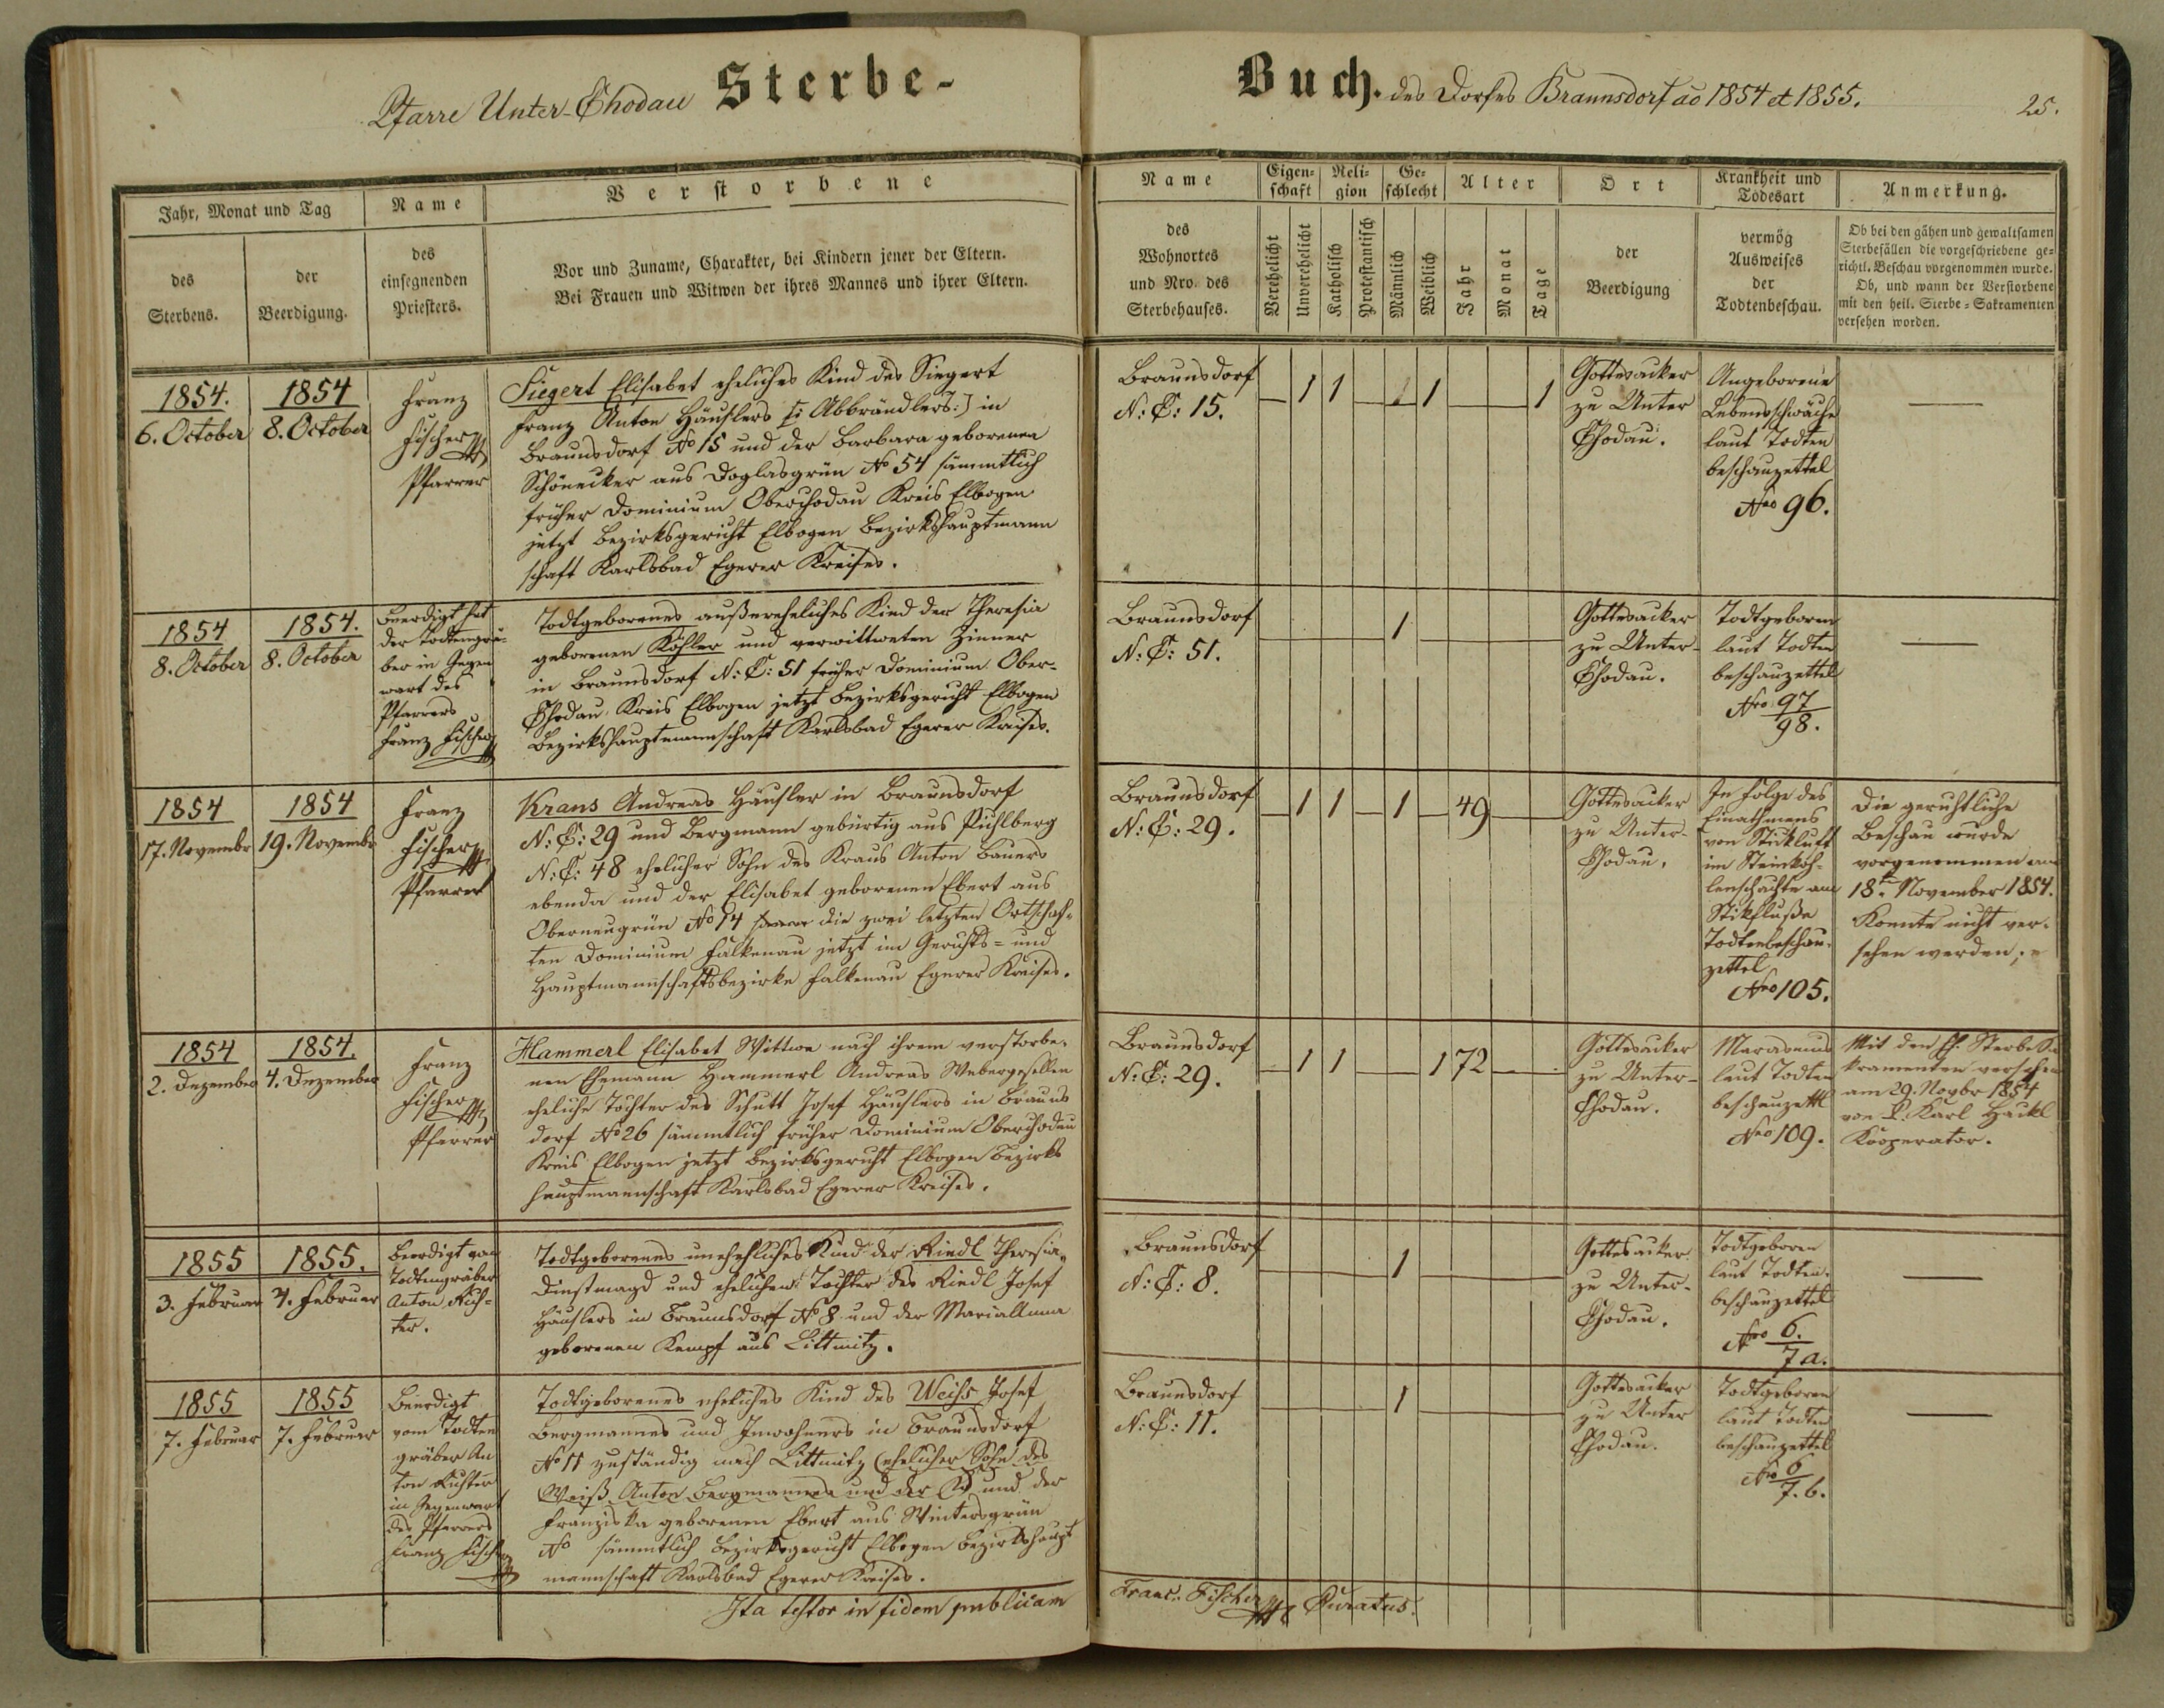 Pfarre Unter-Chodau Sterbe-
Buch. des Dorfes Braunsdorf ao 1854 et 1855.
25.
Jahr, Monat und Tag
des
Sterbens.
der
Beerdigung.
Name
des
einsegnenden
Priesters.
Verstorbene
Vor und Zuname, Charakter, bei Kindern jener der Eltern.
Bei Frauen und Witwen der ihres Mannes und ihrer Eltern.
Name
des
Wohnortes
und Nro. des
Sterbehauses.
Eigen-
schaft
Verehelicht
Unverehelicht
Reli-
gion
Katholisch
Protestantisch
Ge-
schlecht
Männlich
Weiblich
Alter
Jahr
Monat
Tage
Ort
der
Beerdigung
Krankheit und
Todesart
vermög
Ausweises
der
Todtenbeschau.
Anmerkung.
Ob bei den gähen und gewaltsamen
Sterbefällen die vorgeschriebene ge-
richtl. Beschau vorgenommen wurde.
Ob, und wann der Verstorbene
mit den heil. Sterbe-Sakramenten
versehen worden.
1854.
6. October
1854
8. October
Franz
Fischer
Pfarrer
Siegert Elisabet eheliches Kind des Siegert
Franz Anton Häuslers [: Abbrändlers :] in
Braunsdorf No 15 und der Barbara geborenen
Schönecker aus Doglasgrün No 54 sämmtlich
früher Dominium Oberchodau Kreis Elbogen
jetzt Bezirksgericht Elbogen Bezirkshauptmann
schaft Karlsbad Egerer Kreises.
Braunsdorf
N: C: 15.
1 1 1 1
Gottesacker
zu Unter
Chodau.
Angeborene
Lebensschwäche
laut Todten
beschauzettel
Nro 96.
1854
8. October
1854.
8. October
Beerdigt hat
der Todtengrä-
ber in Gegen
wart des
Pfarrers
Franz Fischer
Todtgeborenes außereheliches Kind der Theresia
geborenen Köhler und verwittweten Zinner
in Braunsdorf N: C: 51 früher Dominium Ober-
Chodau Kreis Elbogen jetzt Bezirksgericht Elbogen
Bezirkshauptmannschaft Karlsbad Egerer Kreises.
Braunsdorf
N: C: 51.
1
Gottesacker
zu Unter-
Chodau.
Todtgeboren
laut Todten
beschauzettel
Nro 97
98.
1854
17. Novembr
1854
19. Novembr
Franz
Fischer
Pfarrer
Kraus Andreas Häusler in Braunsdorf
N: C: 29 und Bergmann gebürtig aus Puhlberg
N: C: 48 ehelicher Sohn des Kraus Anton Bauers
ebenda und der Elisabet geborenen Ebert aus
Oberneugrün No 14 die zwei letzten Ortschaf-
ten Dominium Falkenau jetzt im Gerichts- und
Hauptmannschaftsbezirke Falkenau Egerer Kreises.
Braunsdorf
N: C: 29.
1 1 1 49
Gottesacker
zu Unter-
Chodau.
In Folge des
Einathmens
von Stickluft
im Steinkoh-
lenschachte am
Stikfluße
Todtenbeschau-
zettel
Nro 105.
Die gerichtliche
Beschau wurde
vorgenommen am
18ten November 1854.
Konnte nicht ver-
sehen werden.
1854
2. Dezember
1854.
4. Dezember
Franz
Fischer
Pfarrer
Hammerl Elisabet Wittwe nach ihrem verstorbe-
nen Ehemann Hammerl Andreas Webergesellen
eheliche Tochter des Schutt Josef Häuslers in Brauns
dorf No 26 sämmtlich früher Dominium Oberchodau
Kreis Elbogen jetzt Bezirksgericht Elbogen Bezirks
hauptmannschaft Karlsbad Egerer Kreises.
Braunsdorf
N: C: 29.
1 1 1 72
Gottesacker
zu Unter-
Chodau.
Marasmus
laut Todten
beschauzettl
Nro 109.
Mit den hl. Sterbe Sa
kramenten versehen
am 29. Novbr 1854
von P. Karl Hackl
Kooperator.
1855
3. Februar
1855.
4. Februar
Beerdigt vom
Todtengräber
Anton Rich-
ter.
Todtgeborenes uneheliches Kind der Riedl Theresia,
Dienstmagd und ehelichen Tochter des Riedl Josef
Häuslers in Braunsdorf No 8 und der Marianna
geborenen Kempf aus Littmitz.
Braunsdorf
N: C: 8.
1
Gottesacker
zu Unter-
Chodau.
Todtgeboren
laut Todten-
beschauzettel
Nro 6.
7 a.
1855
7. Februar
1855
7. Februar
Beerdigt
vom Todten
gräber An
ton Richter
in Gegenwart
des Pfarrers
Franz Fischer
Todtgeborenes eheliches Kind des Weiss Josef
Bergmannes und Inwohners in Braunsdorf
No 11 zuständig nach Littmitz (ehelicher Sohn des
Weiß Anton Bergmannes und der und der
Franziska geborenen Ebert aus Wintersgrün
No sämmtlich Bezirksgericht Elbogen Bezirkshaupt
mannschaft Karlsbad Egerer Kreises.
Braunsdorf
N: C: 11.
1
Gottesacker
zu Unter
Chodau.
Todtgeboren
laut Todten
beschauzettel
Nro 6
7. b.
Ita testor in fidem publicam
Franc. Fischer Curatus.